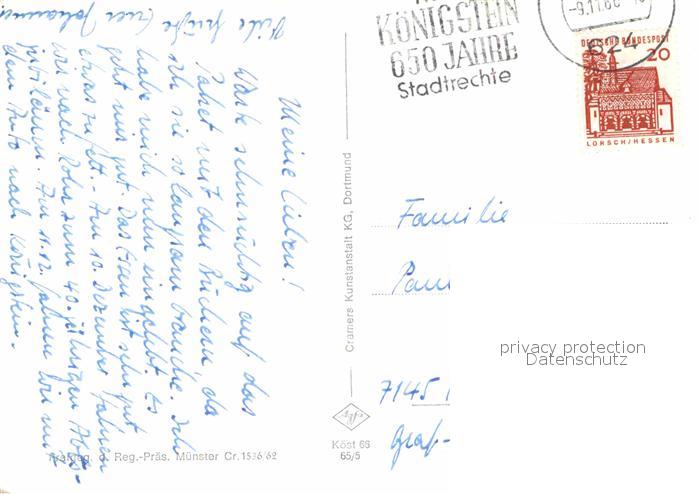 Meine Lieben!
Warte sehnsüchtig auf das
Paket mit den Büchern, da
ich sie so langsam brauche. Ich
habe mich nun eingelebt. Es
geht mir gut. Das Essen ist sehr gut
etwas zu fett. - Am 10. Dezember fahren
wir nach Rohr zum 40. jährigen
jubiläum. Am 11.12. fahren wir mit
dem Auto nach Königstein.
Viele Grüße Euer Johannes
KÖNIGSTEIN
650 JAHRE
Stadtrechte
-9.11.66
624
DEUTSCHE BUNDESPOST
20
LORSCH/HESSEN
Familie
Paul
7145
Graf-
Cramers Kunstanstalt KG, Dortmund
Agfa
Köst 66
65/5
Freigeg. d. Reg.-Präs. Münster Cr. 1536/62
privacy protection
Datenschutz